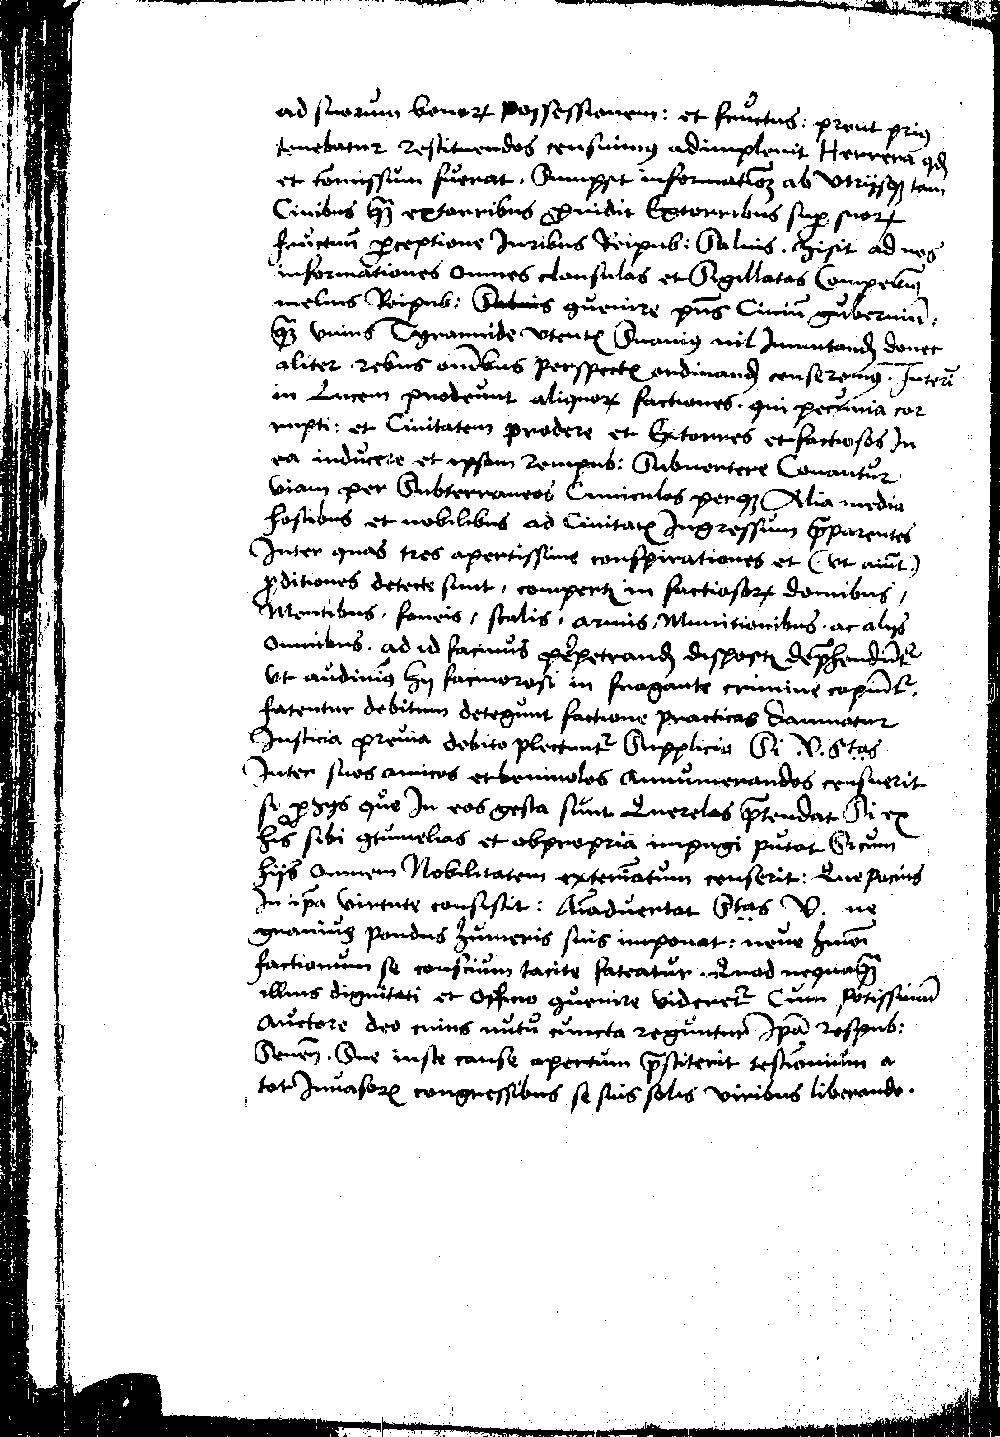 ad suorum bonorꝝ possessionem: et fructus: prout prius
tenebatur restituendos censuimus adimplevit Herrera qd
et comissum fuerat. Sumpsit informationē ab utrijsqꝫ tam
Civibus qꝫ extorribus ꝓvidit Extorribus suꝑ suorꝝ
fructuū ꝑceptione Iuribus Reipub: Salvis. Misit ad nos
informationes omnes clausulas et Sigillatas
melius Reipub: Salutis ꝯvenire pn̄s Civiū gubernium:
qꝫ unius Tyrannide Utentꝭ nil Immutandū donec
aliter rebus omībus perspectꝭ ordinandū censeremus. Interī
in Lucem prodeunt aliquorꝝ factiones. qui pecunia cor
rupti: et Civitatem prodere et Extorres et factiosos In
ea inducere et ipsam rempub: Subvertere Conantur
viam per Subterraneos Cuniculos perqꝫ Alia media
hostibus et nobilibus ad Civitatꝭ Ingressum p̄parentes
Inter quas tres apertissime conspirationes et (ut aiūt.)
ꝓditiones detecte sunt, compertꝭ in factiosorꝝ domibus,
Mentibus, foveis, scalis, armis, Munitionibus. ac alijs
omnibus. ad id facinus perpetrandū dispositꝭ dep̄hendūtr
ut audivimus hij facinorosi in fragante crimine capiūtr.
fatentur debitum detegunt factione practicas damnatur
Iusticia previa debito plectuntr Supplicio Si V. Stas
Inter suos amicos et benivolos Annumerandos censuerit
si ꝓ hijs que In eos gesta sunt Querelas p̄tendat Si ex
his sibi ꝯtumelias et obpropria impingi putat Si cum
hijs omnem Nobilitatem exterīatum censerit: Que pocius
In ip̄a virtute consistit: Aīadvertat Stas V. ne
gravius pondus humeris suis imponat: neve hm̄oi
factionum se conscium tacite fateatur. Quod nequaqꝫ
illius dignitati et officio ꝯvenire videretr Cum potissimū
Auctore deo cuius nutū cuncta reguntur Ip̄a respub:
Senen̄. Sue iuste cause apertum p̄stiterit testimonium a
tot Invasorꝝ congressibus se suis solis viribus liberando.